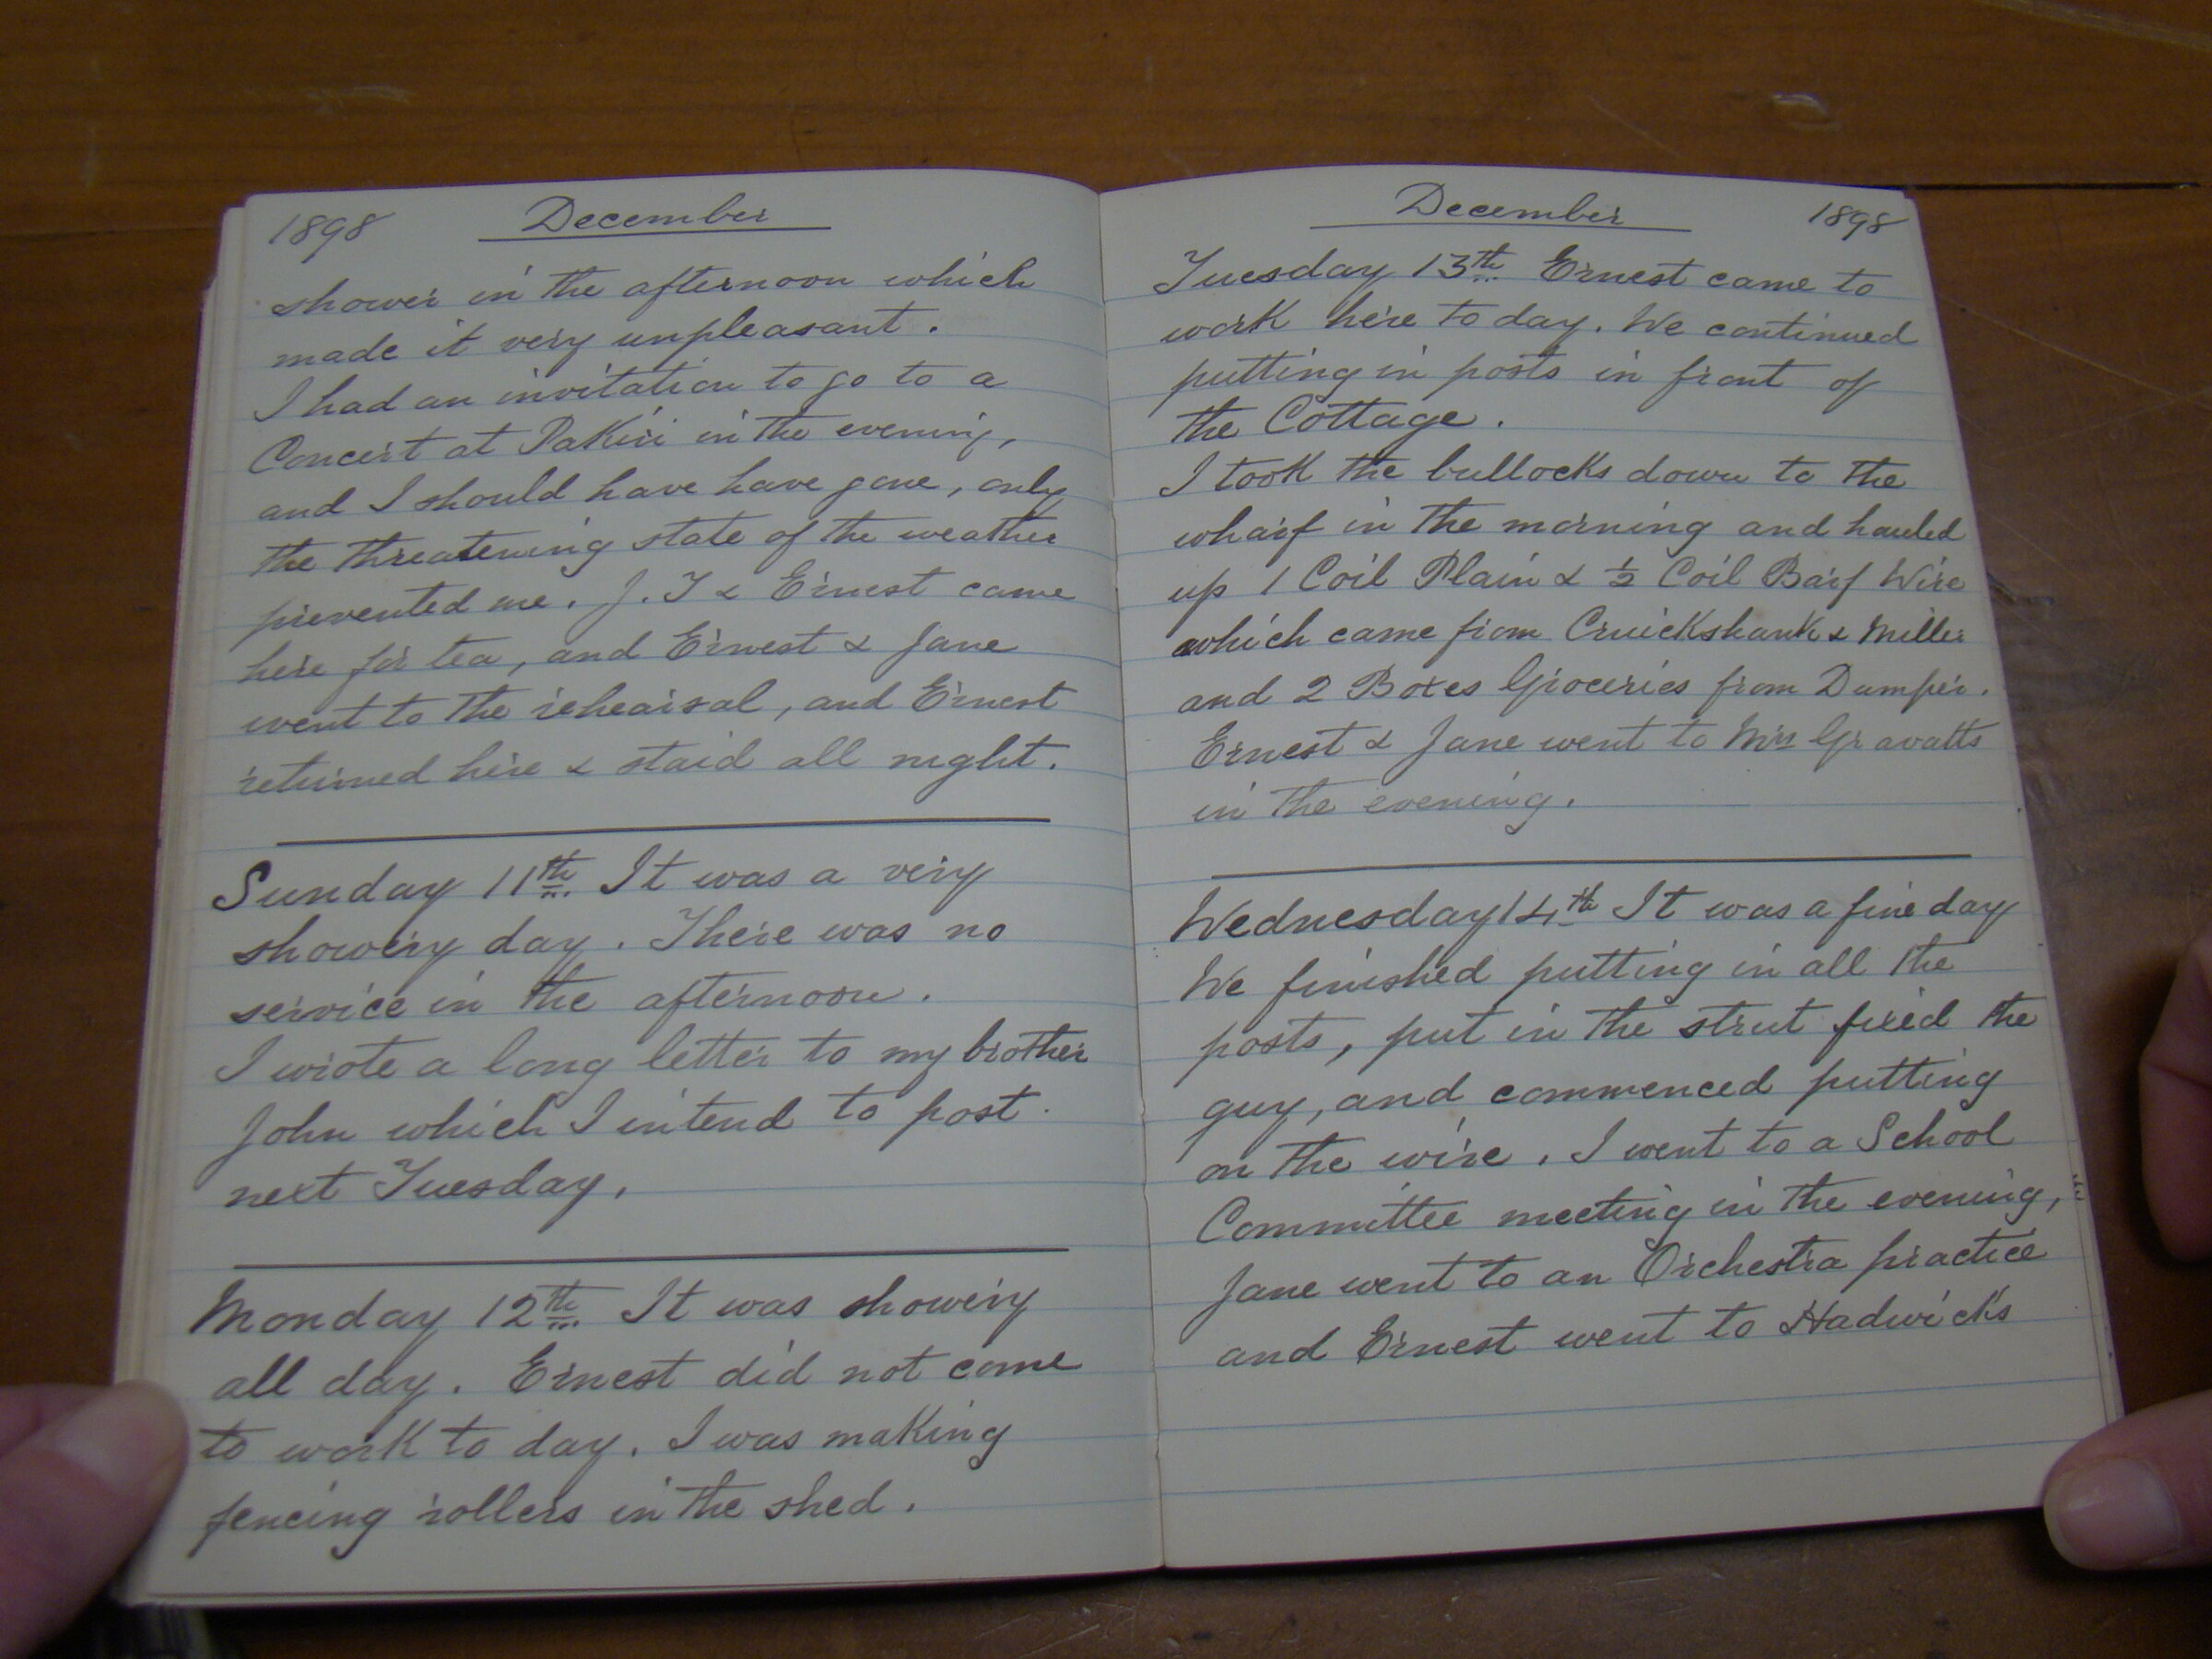 1898 December
shower in the afternoon which
made it very unpleasant.
I had an invitation to go to a
Concert at Pakiri in the evening,
and I should have have gone, only
the threatening state of the weather
prevented me. J. T & Ernest came
here for tea, and Ernest & Jane
went to the rehearsal, and Ernest
returned here & staid all night.
Sunday 11th It was a very
showery day. There was no
service in the afternoon.
I wrote a long letter to my brother
John which I intend to post
next Tuesday.
Monday 12th It was showery
all day. Ernest did not come
to work to day. I was making
fencing rollers in the shed.
December 1898
Tuesday 13th Ernest came to
work here to day. We continued
putting in posts in front of
the Cottage.
I took the bullocks down to the
wharf in the morning and hauled
up 1 Coil Plain & ½ Coil Barf Wire
which came from Cruickshank & Miller
and 2 Boxes Groceries from Dumper.
Ernest & Jane went to Mrs Gravatts
in the evening.
Wednesday 14th It was a fine day
We finished putting in all the
posts, put in the strut fixed the
guy, and commenced putting
on the wire. I went to a School
Committee meeting in the evening,
Jane went to an Orchestra practice
and Ernest went to Hadwick's